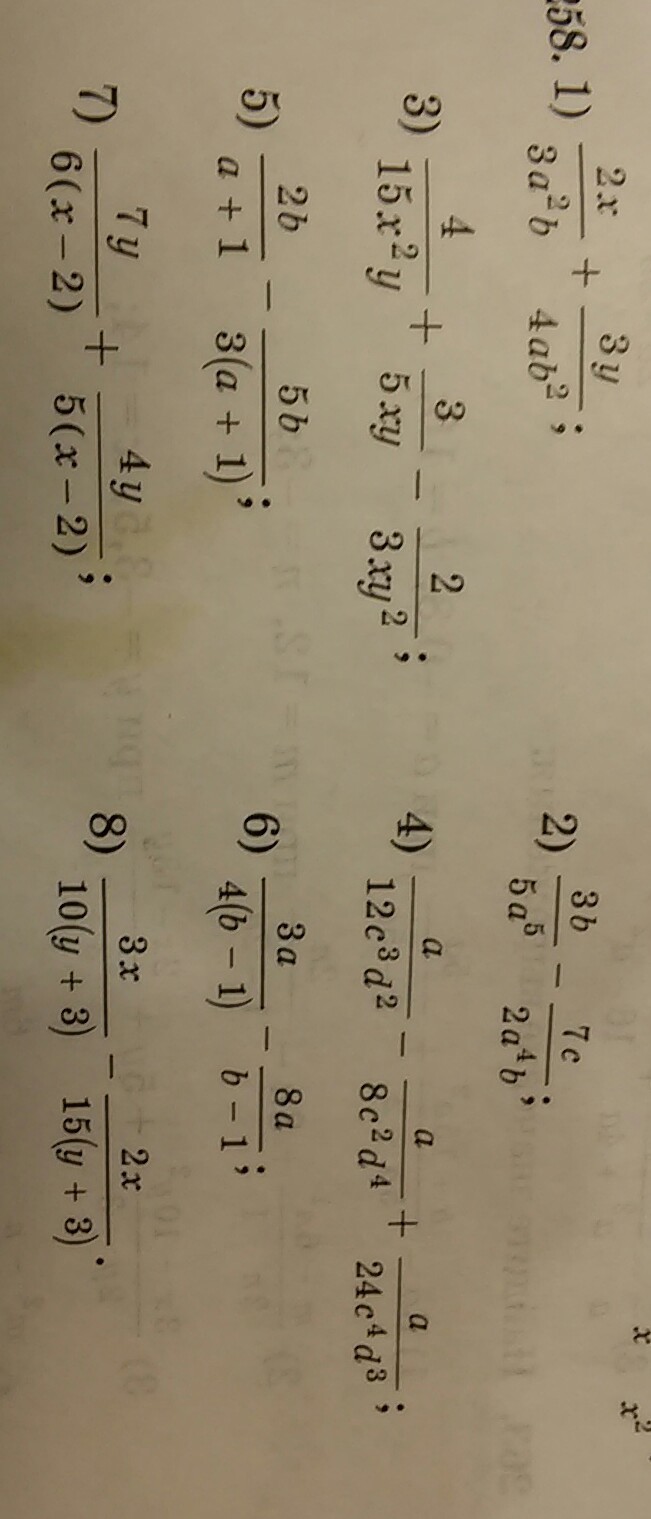 258. 1) 2x/3a²b + 3y/4ab²; 2) 3b/5a⁵ − 7c/2a⁴b;
3) 4/15x²y + 3/5xy − 2/3xy²; 4) a/12c³d² − a/8c²d⁴ + a/24c⁴d³;
5) 2b/a + 1 − 5b/3(a + 1); 6) 3a/4(b − 1) − 8a/b − 1;
7) 7y/6(x − 2) + 4y/5(x − 2); 8) 3x/10(y + 3) − 2x/15(y + 3).